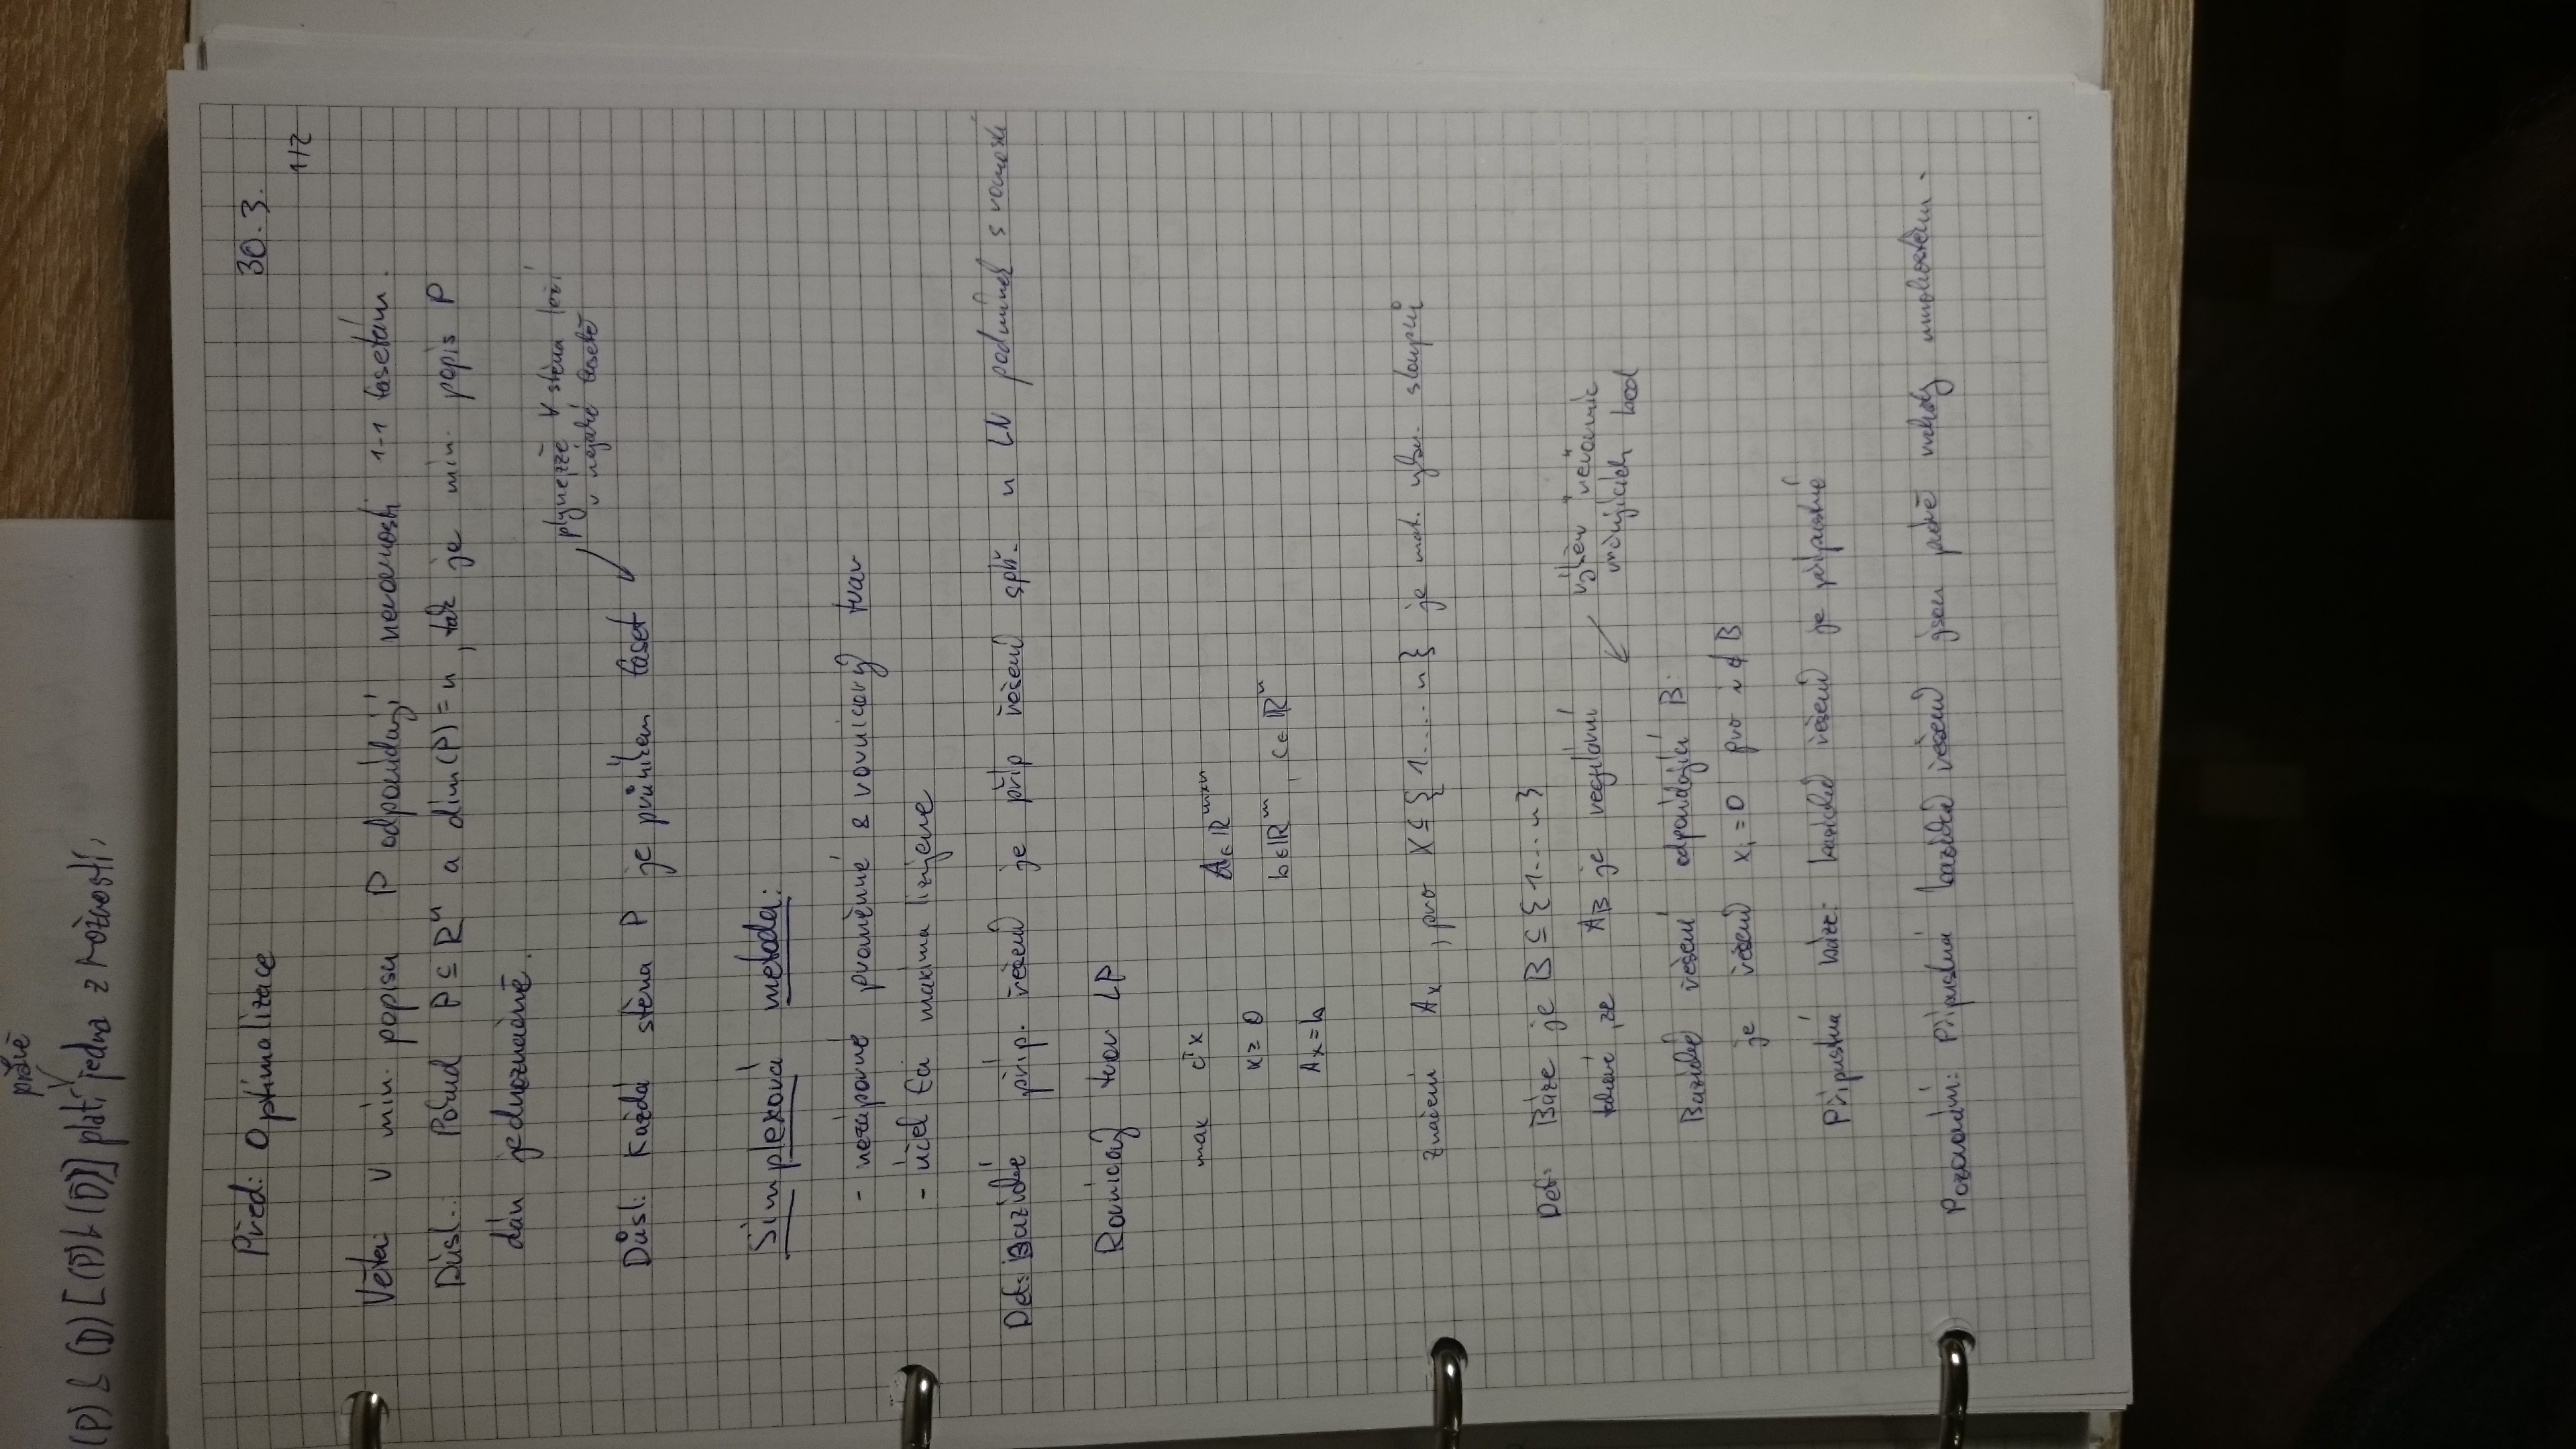 právě
(P) & (D) [(P) & (D)] platí jedna z možností,
Před: Optimalizace 30.3.
1/2
Věta: V min. popisu P odpovídají nerovnosti 1-1 fasetám.
Důsl.: Pokud P ⊆ Rⁿ a dim(P) = n, tak je min. popis P
dán jednoznačně.
plyne, že ∀ stěna leží
v nějaké fasetě
Důsl: Každá stěna P je průnikem faset
Simplexová metoda:
- nezáporné proměnné & rovnicový tvar
- účel. fci maximalizujeme
Def: Bazické příp. řešení je příp řešení splň. n LN podmínek s rovností
Rovnicový tvar LP
max cᵀx A ∈ ℝᵐˣⁿ
x ≥ 0 b ∈ ℝᵐ, c ∈ ℝⁿ
Ax = b
Značení Aₓ, pro X ⊆ {1....n} je mat. vybr. sloupců
Def: Báze je B ⊆ {1...n}
taková, že A_B je regulární
výběr nerovnic
určujících bod
Bazické řešení odpovídající B:
je řešení xᵢ = 0 pro i ∉ B
Přípustná báze: bazické řešení je přípustné
Pozorování: Přípustná bazická řešení jsou právě vrcholy mnohostěnu.